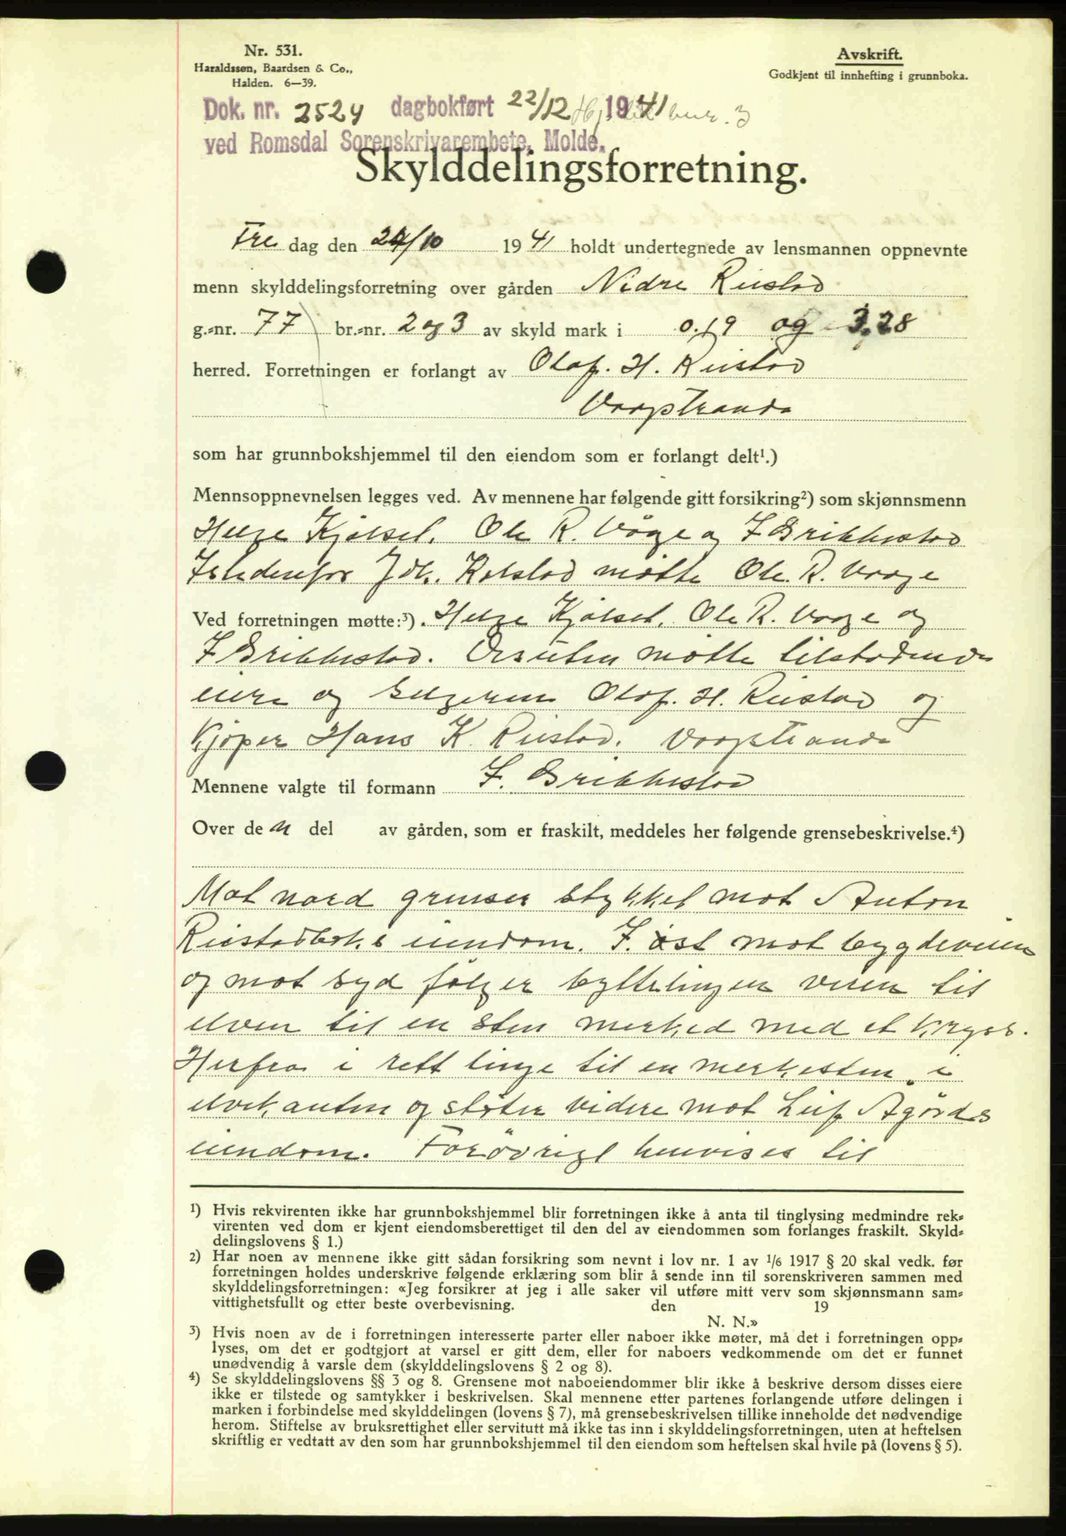 Nr. 531.
Haraldssøn, Baardsen & Co.,
Halden. 6—39.
Avskrift.
Godkjent til innhefting i grunnboka.
Dok. nr. 2524 dagbokført 22/12 1941
ved Romsdal Sorenskrivarembete, Molde.
Skylddelingsforretning.
Fre dag den 24/10 1941 holdt undertegnede av lensmannen oppnevnte
menn skylddelingsforretning over gården Nidre Reistad
g.-nr. 77 br.-nr. 2 og 3 av skyld mark i 0.19 og 3.28
herred. Forretningen er forlangt av Olaf. H. Reistad
Vaagstranda
som har grunnbokshjemmel til den eiendom som er forlangt delt¹.)
Mennsoppnevnelsen legges ved. Av mennene har følgende gitt forsikring²) som skjønnsmenn
Helge Kjølset. Ole R. Våge og F Brikkestad
Istedenfor Joh. Kolstad møtte Ole. R. Vaage
Ved forretningen møtte:³). Helge Kjølset. Ole R. Vaage og
F Brikkestad. Desuten møtte tilstødende
eiere og selgeren Olaf. H. Reistad og
Kjøper Hans K. Reistad. Vaagstranda
Mennene valgte til formann F. Brikkestad
Over den del av gården, som er fraskilt, meddeles her følgende grensebeskrivelse.⁴)
Mot nord grenser stykket mot Anton
Reistadbøks eiendom. I. øst mot bygdeveien
og mot syd følger byttelingen veien til
elven til en sten merked med et kryss.
Herfra i rett linge til en merkesten i
elvekanten og støter videre mot Leif Agørds
eiendom. Forøvrigt henvises til
¹) Hvis rekvirenten ikke har grunnbokshjemmel blir forretningen ikke å anta til tinglysing medmindre rek-
virenten ved dom er kjent eiendomsberettiget til den del av eiendommen som forlanges fraskilt. Skyld-
delingslovens § 1.)
²) Har noen av mennene ikke gitt sådan forsikring som nevnt i lov nr. 1 av ¹/₆ 1917 § 20 skal vedk. før
forretningen holdes underskrive følgende erklæring som blir å sende inn til sorenskriveren sammen med
skylddelingsforretningen: «Jeg forsikrer at jeg i alle saker vil utføre mitt verv som skjønnsmann sam-
vittighetsfullt og etter beste overbevisning. den 19
N. N.»
³) Hvis noen av de i forretningen interesserte parter eller naboer ikke møter, må det i forretningen opp-
lyses, om det er godtgjort at varsel er gitt dem, eller for naboers vedkommende om det er funnet
unødvendig å varsle dem (skylddelingslovens § 2 og 8).
⁴) Se skylddelingslovens §§ 3 og 8. Grensene mot naboeiendommer blir ikke å beskrive dersom disses eiere
ikke er tilstede og samtykker i beskrivelsen. Skal mennene etter partenes forlangende utføre delingen i
marken i forbindelse med skylddelingen (lovens § 7), må grensebeskrivelsen tillike inneholde det nødvendige
herom. Stiftelse av bruksrettighet eller servitutt må ikke tas inn i skylddelingsforretningen, uten at heftelsen
skriftlig er vedtatt av den som har grunnbokshjemmel til den eiendom som heftelsen skal hvile på (lovens § 5).